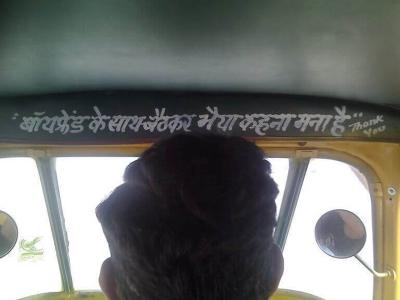 "बॉयफ्रेंड के साथ बैठकर भैया कहना मना है"
Thank You